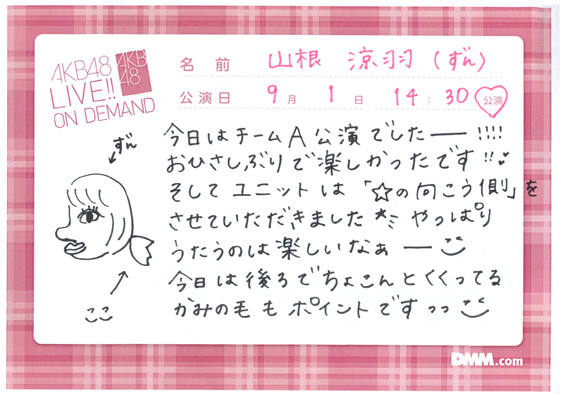 AKB48
LIVE!!
ON DEMAND
AKB
48
名前 山根 涼羽 (ずん)
公演日 9月 1日 14:30 公演
ずん
今日はチームA公演でしたー!!!!
おひさしぶりで楽しかったです!!
そしてユニットは「☆の向こう側」を
させていただきました やっぱり
うたうのは楽しいなぁー
今日は後ろでちょこんとくくってる
かみの毛もポイントですっっ
ここ
DMM.com